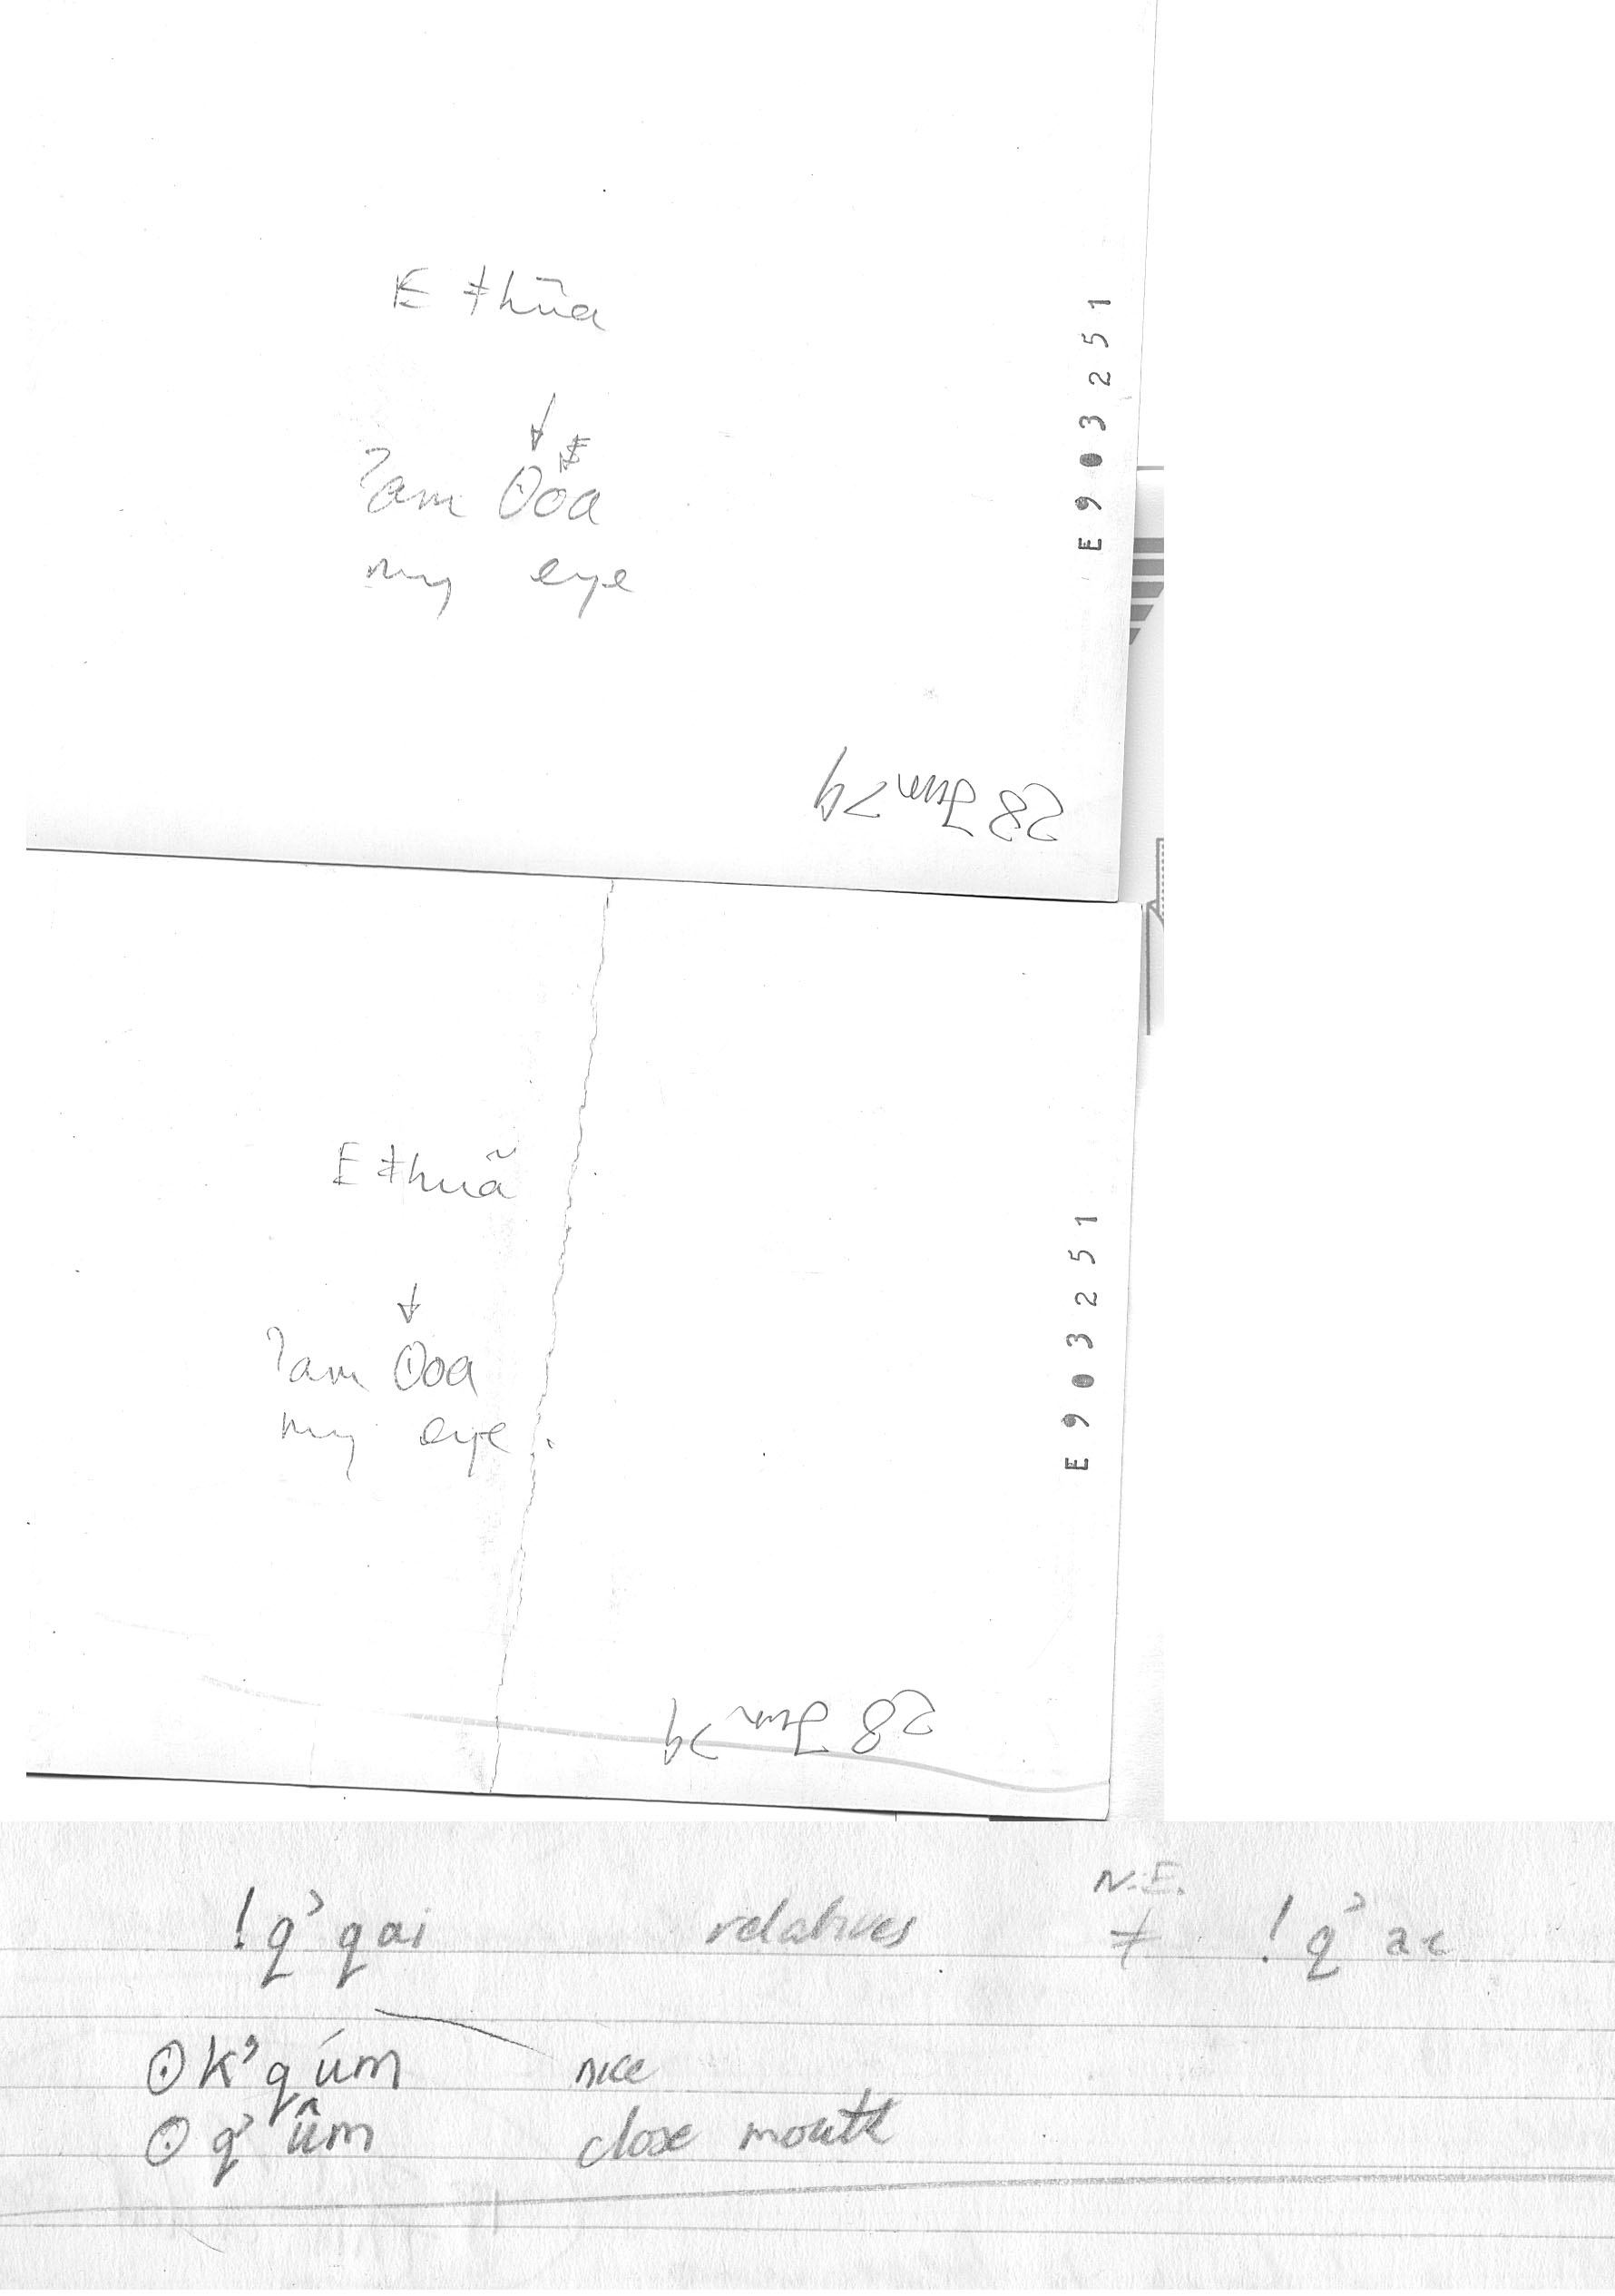 E ǂhũa
↓ ǂ
ʔam ʘoa
my eye
E903251
28 Jun 79
E ǂhuã
↓
ʔam ʘoa
my eye
E903251
28 Jun 79
N.E.
!q'qai relatives ≠ !q'ai
ʘk'qúm nice
ʘq'ûm close mouth